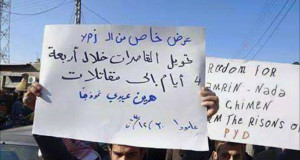 عرض خاص من الـ PYD
تحويل القاصرات خلال أربعة
أيام إلى مقاتلات
هرين عبدي نموذجا
عامودا
REEDOM FOR
MRIN - Nada
CHIMEN
OM THE RISONS OF
PYD